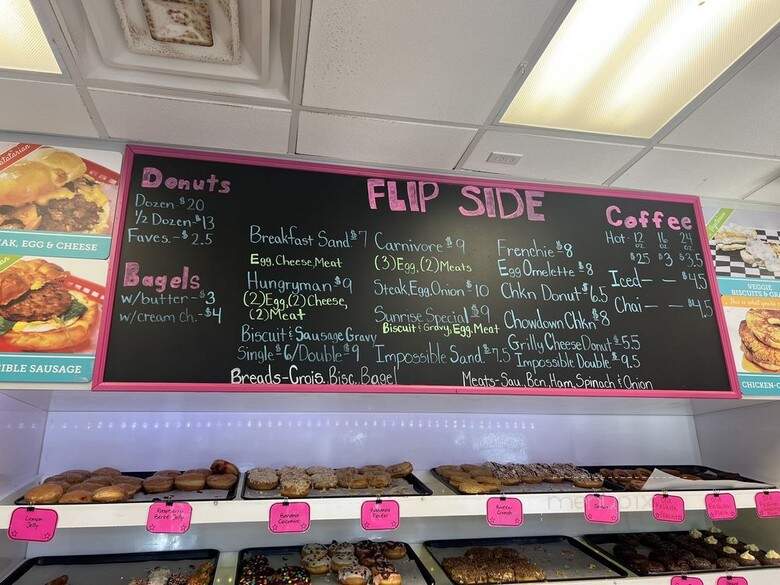 Donuts
Dozen. $20
1/2 Dozen-$13
Faves.-$2.5
Bagels
w/butter-$3
w/cream ch.-$4
FLIP SIDE
Breakfast Sand $7
Egg, Cheese, Meat
Hungryman $9
(2)Egg,(2)Cheese,
(2)Meat
Biscuit & Sausage Gravy
Single $6/Double $9
Carnivore $9
(3)Egg,(2)Meats
Steak,Egg,Onion $10
Sunrise Special $9
Biscuit & Gravy, Egg, Meat
Impossible Sand $7.5
Frenchie-$8
Egg Omelette $8
Chkn Donut $6.5
Chowdown Chkn $8
Grilly Cheese Donut $5.5
Impossible Double $9.5
Breads-Crois. Bisc. Bagel
Meats-Sau, Bcn, Ham, Spinach & Onion
Coffee
Hot- 12 oz 16 oz 24 oz
$25 $3 $3.5
Iced-- $4.5
Chai-- $4.5
AK, EGG & CHEESE
IBLE SAUSAGE
VEGGIE
BISCUITS & G
CHICKEN-
Lemon
Jelly